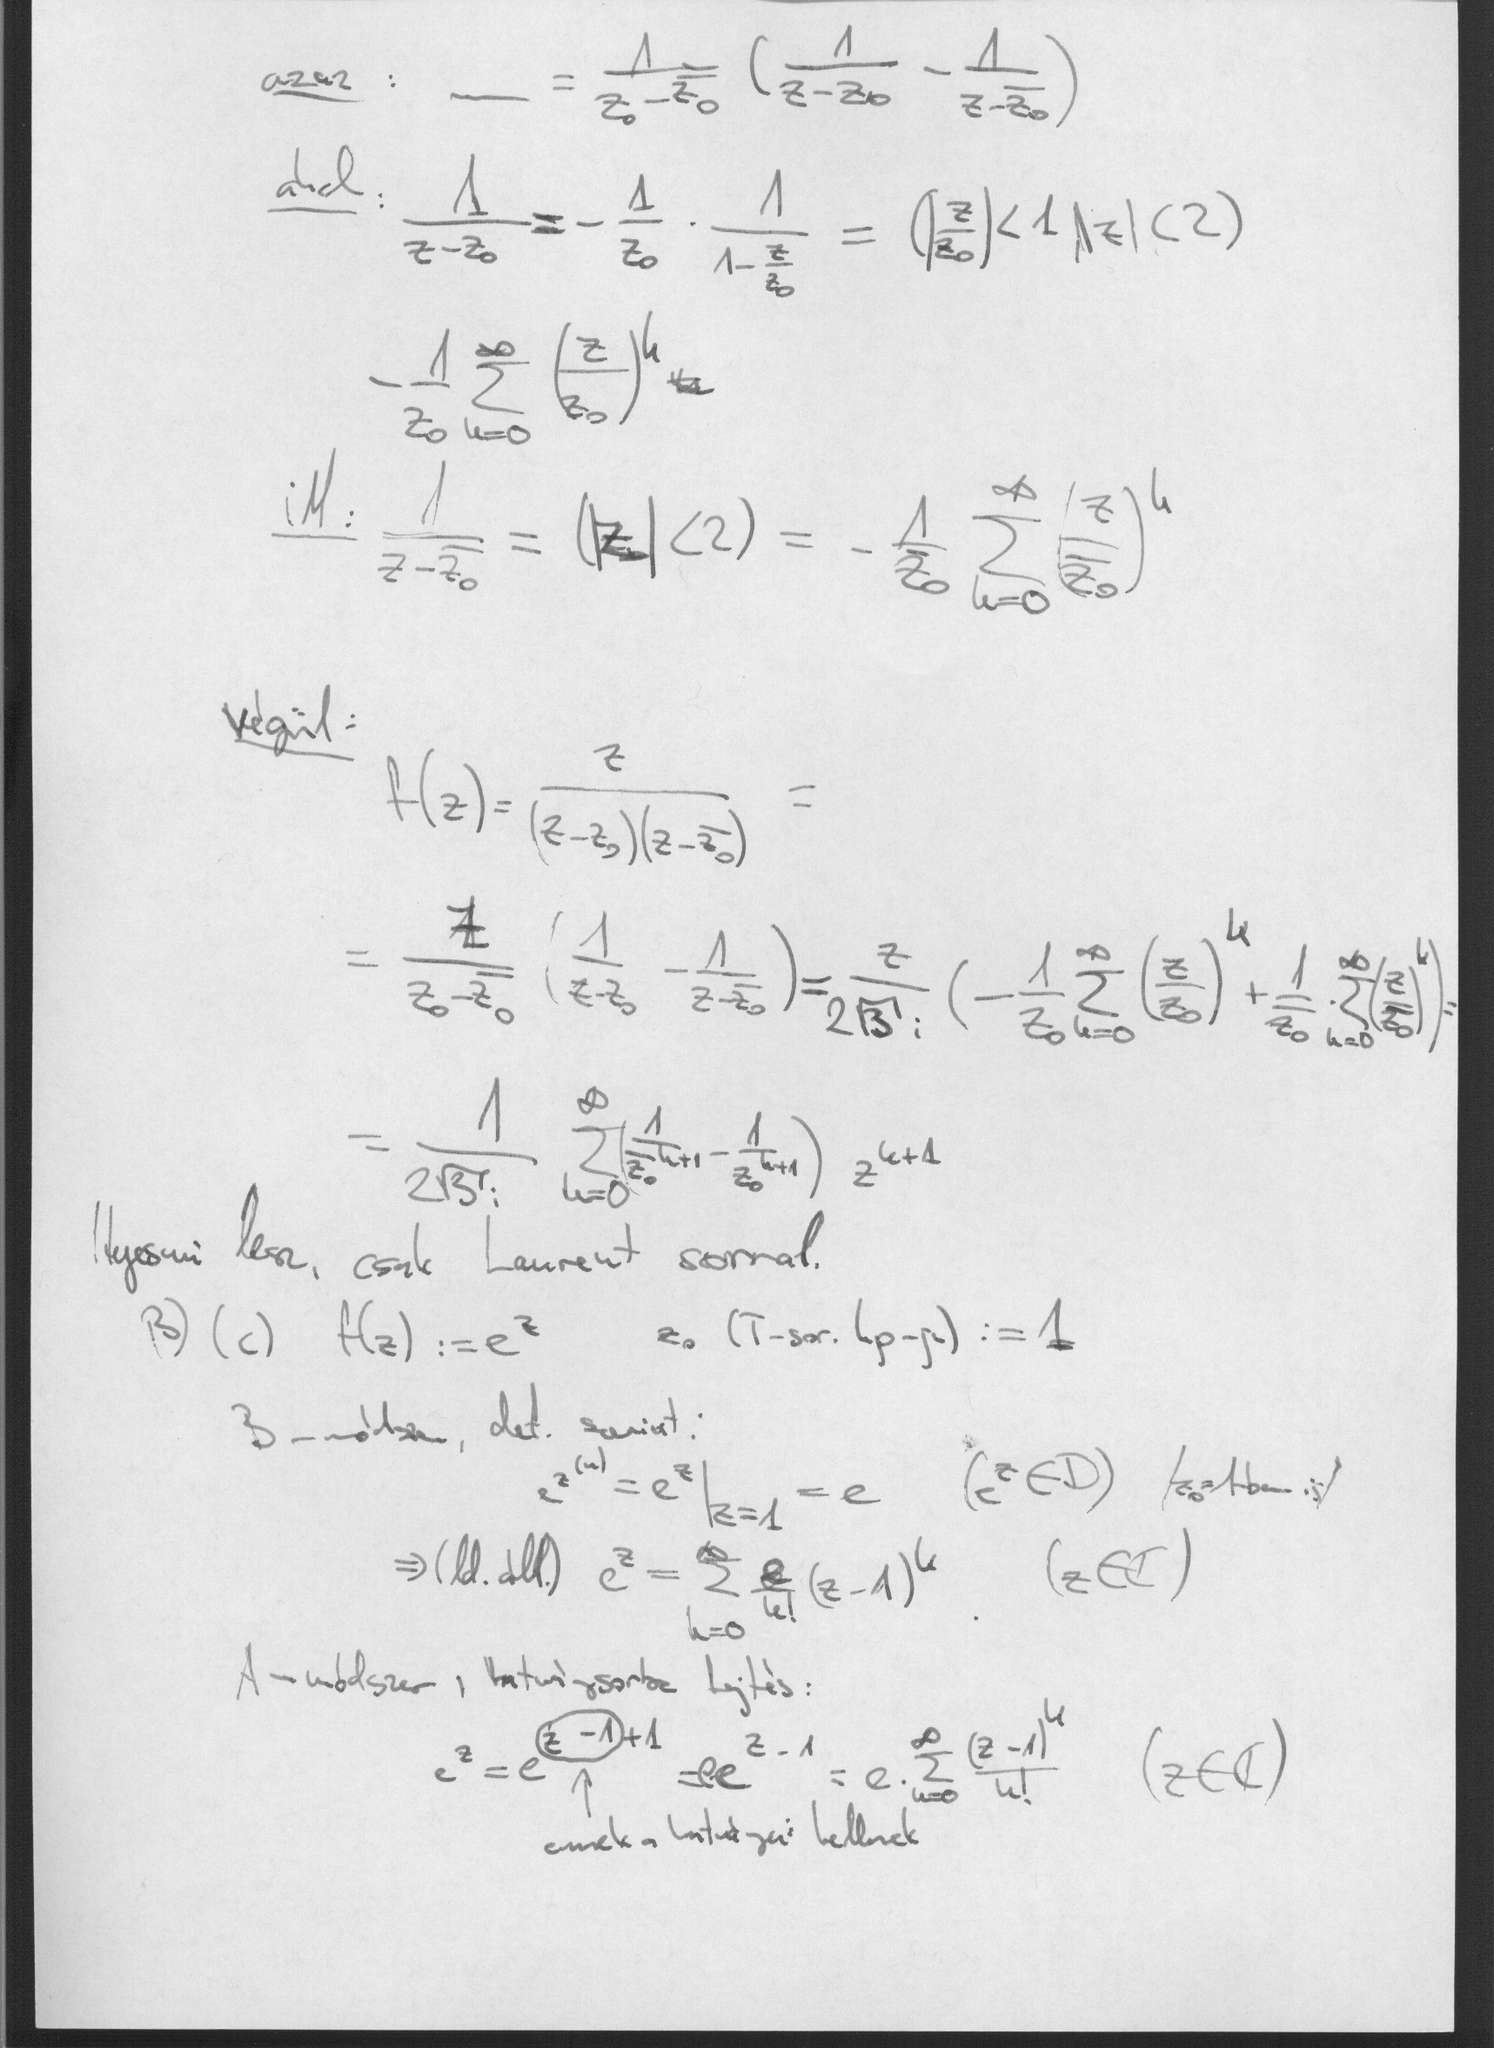 azaz : — = 1/(z₀ - z̄₀) (1/(z - z₀) - 1/(z - z̄₀))
ahol : 1/(z - z₀) = - 1/z₀ · 1/(1 - z/z₀) = (|z/z₀| < 1 |z| < 2)
- 1/z₀ ∑_{k=0}^{∞} (z/z₀)^k
íly : 1/(z - z̄₀) = (|z| < 2) = - 1/z̄₀ ∑_{k=0}^{∞} (z/z̄₀)^k
végül :
f(z) = z/((z - z₀)(z - z̄₀)) =
= z/(z₀ - z̄₀) (1/(z - z₀) - 1/(z - z̄₀)) = z/(2√3 i) (- 1/z₀ ∑_{k=0}^{∞} (z/z₀)^k + 1/z̄₀ · ∑_{k=0}^{∞} (z/z̄₀)^k) =
= 1/(2√3 i) ∑_{k=0}^{∞} (1/z̄₀^{k+1} - 1/z₀^{k+1}) z^{k+1}
Ilyesmi lesz, csak Laurent sorral.
B) (c) f(z) := e^z z₀ (T-sor. kp-ja) := 1
B - módszer, def. szerint :
e^{z (k)} = e^z |_{z=1} = e (e^z ∈ D) /z₀=1-ben is/
⇒ (ld. áll.) e^z = ∑_{k=0}^{∞} e/k! (z - 1)^k (z ∈ ℂ)
A - módszer, hatványsorba fejtés :
e^z = e^{z - 1 + 1} = e e^{z - 1} = e · ∑_{k=0}^{∞} (z - 1)^k/k! (z ∈ ℂ)
↑
ennek a hatványai kellenek